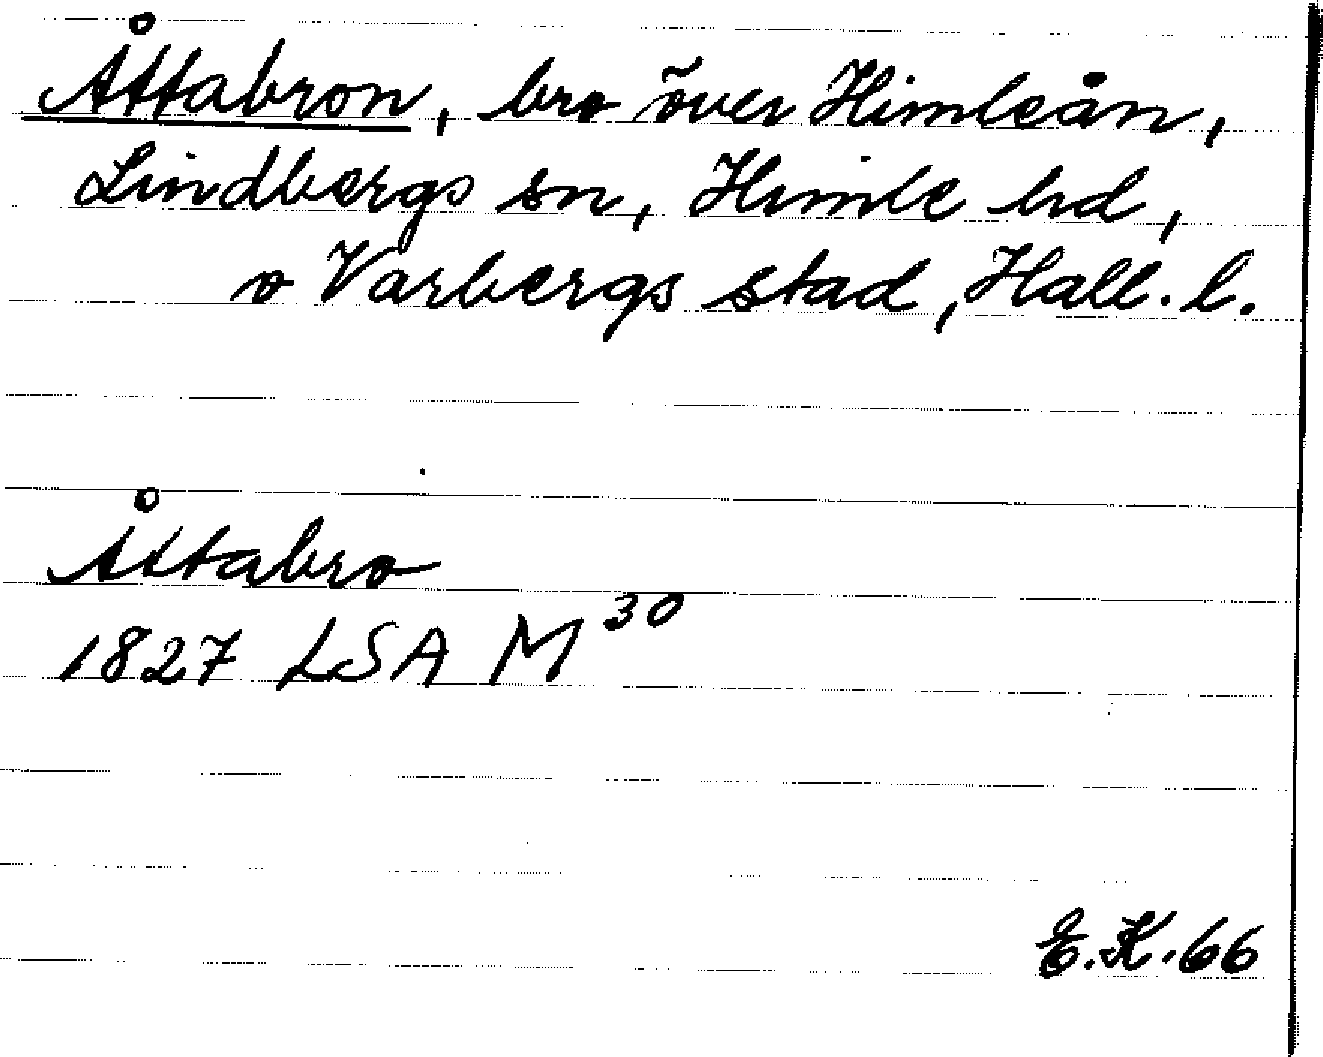 Åttabron, bro över Himleån,
Lindbergs sn, Himle hd,
o Varbergs stad, Hall. l.
Åttabro
1827 LSA M 30
E.K. 66